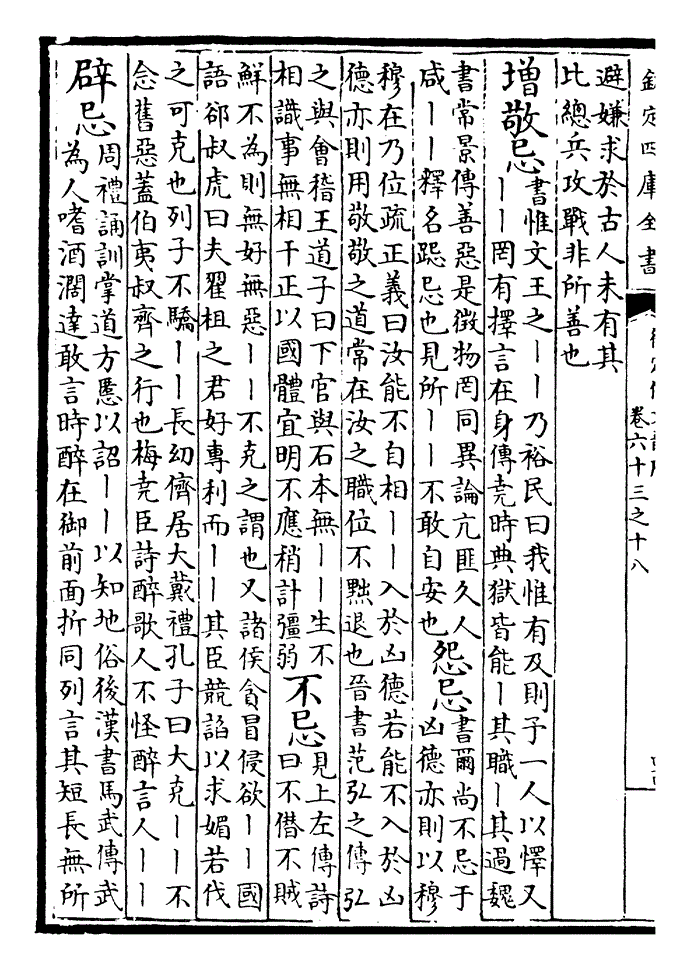 欽定四庫全書
卷六十三之十八
避嫌求於古人未有其
比總兵攻戰非所善也
增敬忌
書惟文王之〡〡乃裕民曰我惟有及則予一人以懌又
〡〡罔有擇言在身傳堯時典獄皆能〡其職〡其過魏
書常景傳善惡是徵物罔同異論亢匪久人
咸〡〡釋名跽忌也見所〡〡不敢自安也
怨忌
書爾尚不忌于
凶德亦則以穆
穆在乃位疏正義曰汝能不自相〡〡入於凶德若能不入於凶
德亦則用敬敬之道常在汝之職位不黜退也晉書范弘之傳弘
之與會稽王道子曰下官與石本無〡〡生不
相識事無相干正以國體宜明不應稍計彊弱
不忌
見上左傳詩
曰不僭不賊
鮮不為則無好無惡〡〡不克之謂也又諸侯貪冒侵欲〡〡國
語郤叔虎曰夫翟柤之君好專利而〡〡其臣競諂以求媚若伐
之可克也列子不驕〡〡長幼儕居大戴禮孔子曰大克〡〡不
念舊惡蓋伯夷叔齊之行也梅堯臣詩醉歌人不怪醉言人〡〡
辟忌
周禮誦訓掌道方慝以詔〡〡以知地俗後漢書馬武傳武
為人嗜酒濶達敢言時醉在御前面折同列言其短長無所